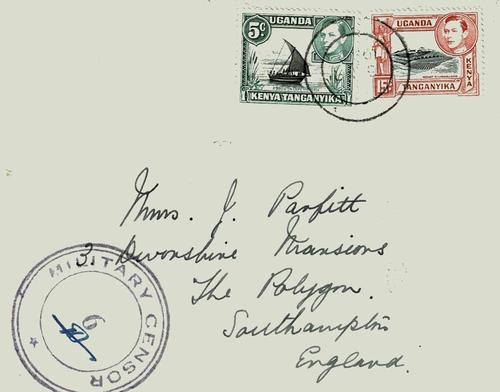 5c UGANDA
KENYA TANGANYIKA
UGANDA
KENYA
TANGANYIKA
Mrs. J. Parfitt
3 Devonshire Mansions
The Polygon.
Southampton
England.
MILITARY CENSOR
6